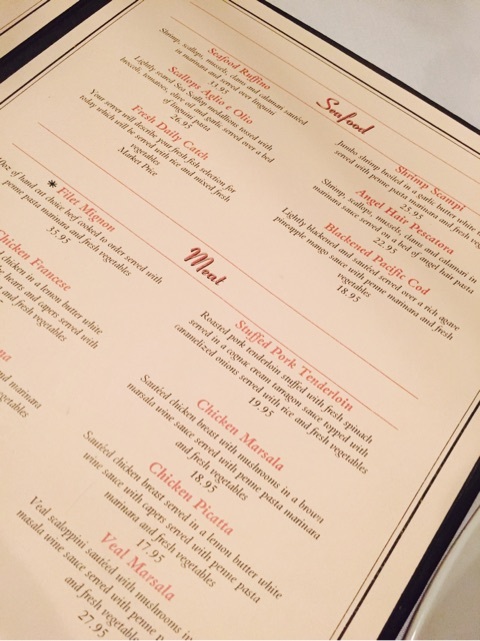 Seafood
Seafood Ruffino
Shrimp, scallops, mussels, clams and calamari sautéed
in marinara and served over linguini
33.95
Scallops Aglio e Olio
Lightly seared Sea Scallop medallions tossed with
fennel, tomatoes, olive oil and garlic served over a bed
of linguini pasta
26.95
Fresh Daily Catch
Your server will describe your fresh fish selection for
today which will be served with rice and mixed fresh
vegetables
Market Price
Shrimp Scampi
Jumbo shrimp broiled in a garlic butter white
served with penne pasta marinara and fresh veg
25.95
Angel Hair Pescatora
Shrimp, scallops, mussels, clams and calamari in
marinara sauce served on a bed of angel hair pasta
22.95
Blackened Pacific Cod
Lightly blackened and sautéed served over a rich agave
pineapple mango sauce with penne marinara and fresh
vegetables
18.95
Meat
* Filet Mignon
10oz of hand cut choice beef cooked to order served with
penne pasta marinara and fresh vegetables
35.95
Chicken Francese
chicken in a lemon butter white
hearts and capers served with
and fresh vegetables
na
and marinara
vegetables
Stuffed Pork Tenderloin
Roasted pork tenderloin stuffed with fresh spinach
served in a cognac cream tarragon sauce topped with
caramelized onions served with rice and fresh vegetables
19.95
Chicken Marsala
Sautéed chicken breast with mushrooms in a brown
marsala wine sauce served with penne pasta marinara
and fresh vegetables
18.95
Chicken Picatta
Sautéed chicken breast served in a lemon butter white
wine sauce with capers served with penne pasta
marinara and fresh vegetables
17.95
Veal Marsala
Veal scaloppini sautéed with mushrooms in
masala wine sauce served with penne p
and fresh vegetables
27.95